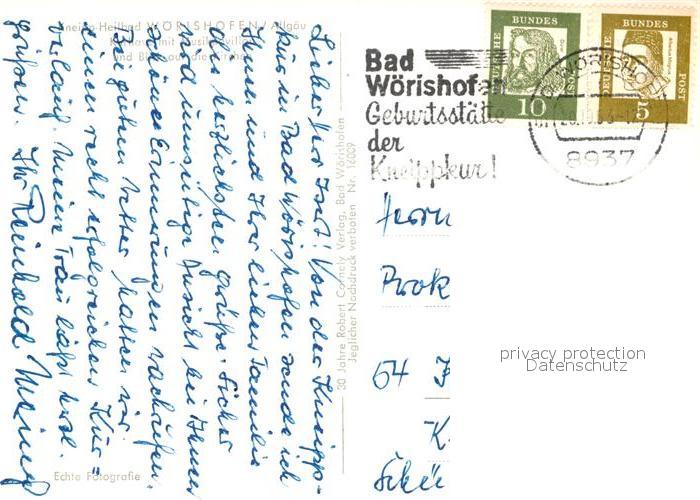 Kneipp-Heilbad WÖRISHOFEN / Allgäu
Lieber Herr Jost! Von der Kneipp-
kur in Bad Wörishofen sende ich
Ihnen und Ihrer lieben Familie
die herzlichsten Grüße. Sicher
wird umseitige Ansicht bei Ihnen
schöne Erinnerungen wachrufen.
Bei gutem Wetter hatten wir
einen recht erfolgreichen Kur=
verlauf. Meine Frau läßt herzl.
grüßen. Ihr Reinhold
Echte Fotografie
30 Jahre Robert Cornely Verlag, Bad Wörishofen
Jeglicher Nachdruck verboten Nr. 16009
Bad
Wörishofen
Geburtsstätte
der
Kneippkur!
DEUTSCHE BUNDES POST
10
DEUTSCHE BUNDES POST
5
WÖRISHOFEN
8937
Herrn
Prok
64
K.
privacy protection
Datenschutz